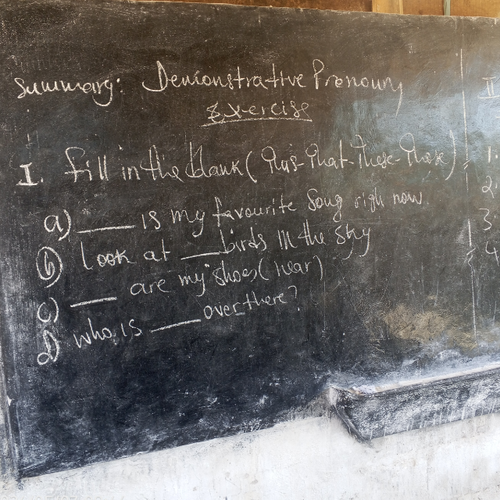 Summary: Demonstrative Pronoun
Exercise
I. fill in the blank (this-that-these-those)
a) ___ is my favourite song right now
b) look at ___ birds in the sky
c) ___ are my shoes (near)
d) who is ___ over there?
II
1.
2.
3
4